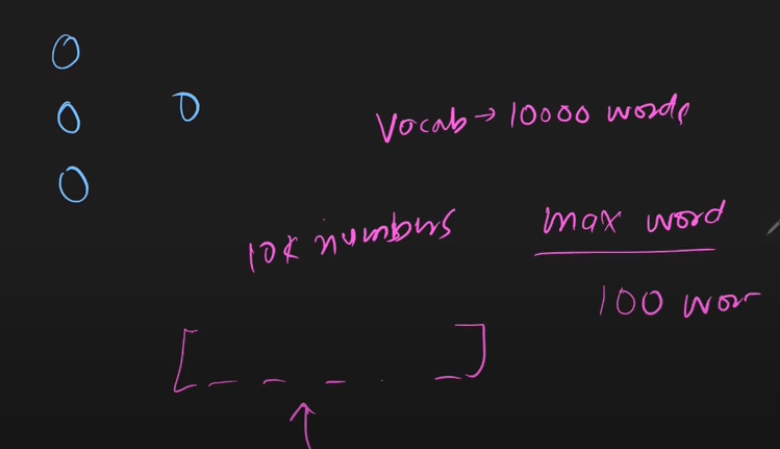 Vocab → 10000 words
10k numbers
max word
100 wor
[_ _ _ . _]